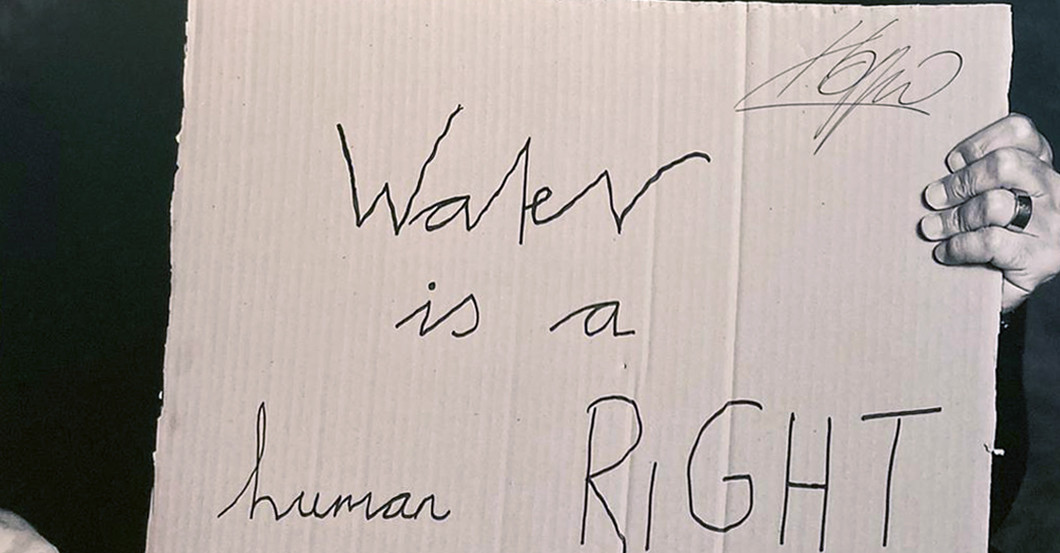 Water
is a
human RIGHT